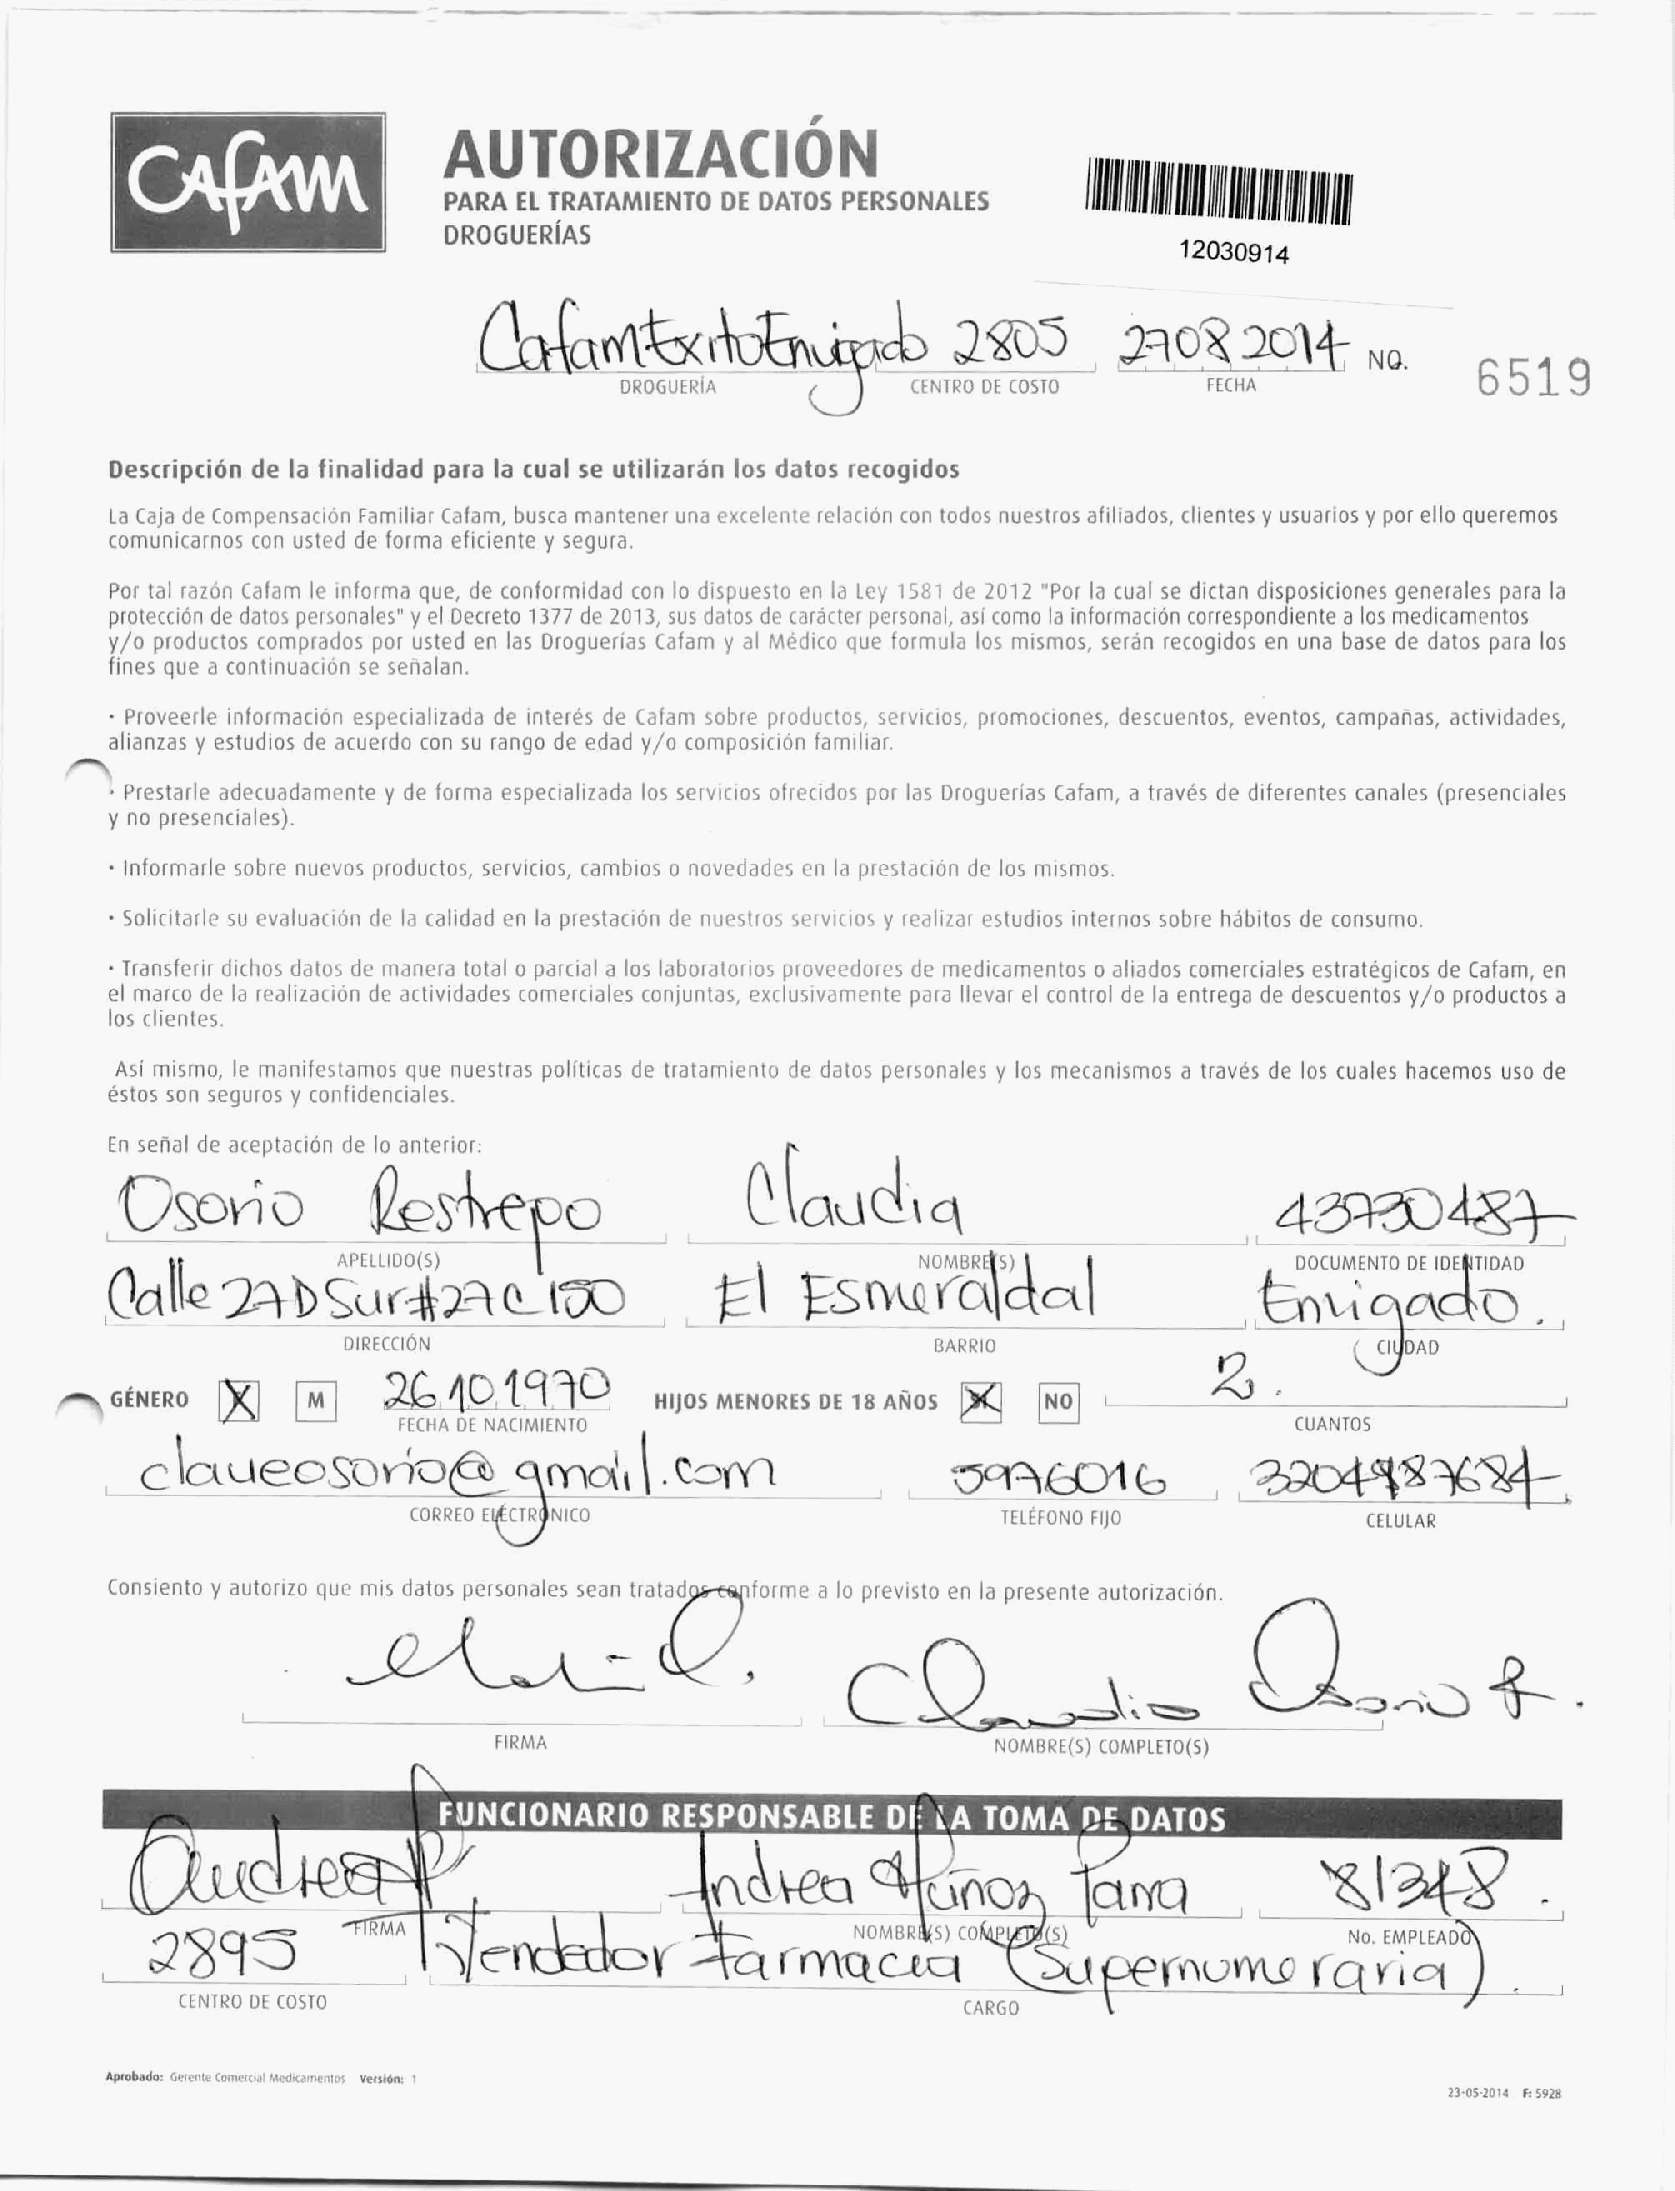 Cafam
AUTORIZACIÓN
PARA EL TRATAMIENTO DE DATOS PERSONALES
DROGUERÍAS
12030914
CafamExitoEnvigado 2805 27082014 NO. 6519
DROGUERÍA CENTRO DE COSTO FECHA
Descripción de la finalidad para la cual se utilizarán los datos recogidos
La Caja de Compensación Familiar Cafam, busca mantener una excelente relación con todos nuestros afiliados, clientes y usuarios y por ello queremos
comunicarnos con usted de forma eficiente y segura.
Por tal razón Cafam le informa que, de conformidad con lo dispuesto en la Ley 1581 de 2012 "Por la cual se dictan disposiciones generales para la
protección de datos personales" y el Decreto 1377 de 2013, sus datos de carácter personal, así como la información correspondiente a los medicamentos
y/o productos comprados por usted en las Droguerías Cafam y al Médico que formula los mismos, serán recogidos en una base de datos para los
fines que a continuación se señalan.
· Proveerle información especializada de interés de Cafam sobre productos, servicios, promociones, descuentos, eventos, campañas, actividades,
alianzas y estudios de acuerdo con su rango de edad y/o composición familiar.
· Prestarle adecuadamente y de forma especializada los servicios ofrecidos por las Droguerías Cafam, a través de diferentes canales (presenciales
y no presenciales).
· Informarle sobre nuevos productos, servicios, cambios o novedades en la prestación de los mismos.
· Solicitarle su evaluación de la calidad en la prestación de nuestros servicios y realizar estudios internos sobre hábitos de consumo.
· Transferir dichos datos de manera total o parcial a los laboratorios proveedores de medicamentos o aliados comerciales estratégicos de Cafam, en
el marco de la realización de actividades comerciales conjuntas, exclusivamente para llevar el control de la entrega de descuentos y/o productos a
los clientes.
Así mismo, le manifestamos que nuestras políticas de tratamiento de datos personales y los mecanismos a través de los cuales hacemos uso de
éstos son seguros y confidenciales.
En señal de aceptación de lo anterior:
Osorio Restrepo Claudia 43730487
APELLIDO(S) NOMBRE(S) DOCUMENTO DE IDENTIDAD
Calle 27D Sur #27C 150 El Esmeraldal Envigado.
DIRECCIÓN BARRIO CIUDAD
GÉNERO X M 26.10.1970 HIJOS MENORES DE 18 AÑOS X NO 2.
FECHA DE NACIMIENTO CUANTOS
claueosorio@gmail.com 5976016 3204987684
CORREO ELÉCTRONICO TELÉFONO FIJO CELULAR
Consiento y autorizo que mis datos personales sean tratados conforme a lo previsto en la presente autorización.
Claudia Osorio R.
FIRMA NOMBRE(S) COMPLETO(S)
FUNCIONARIO RESPONSABLE DE LA TOMA DE DATOS
Andrea Andrea Muñoz Parra 81348.
FIRMA NOMBRE(S) COMPLETO(S) No. EMPLEADO
2895 Vendedor Farmacia (Supernumeraria).
CENTRO DE COSTO CARGO
Aprobado: Gerente Comercial Medicamentos Versión: 1
23-05-2014 F: 5928